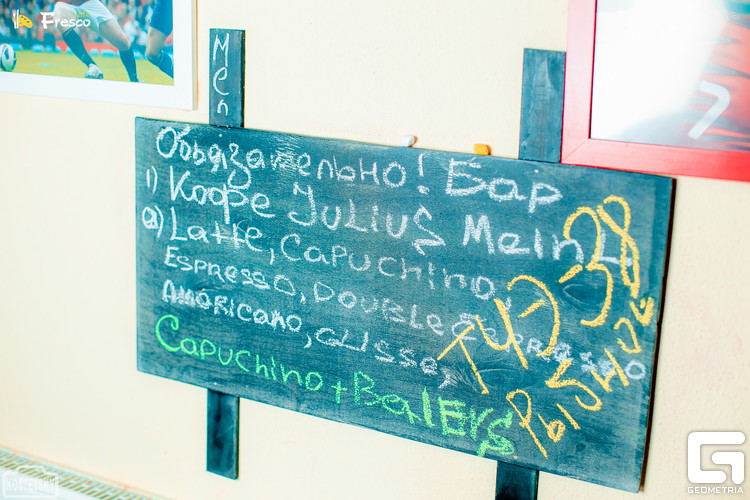 Fresco
Обьязательно! Бар
1) Кофе Julius Meinl
2) Latte, Capuchino,
Espresso, Double Espresso
Americano, Glisse,
Capuchino + Baleys
7
GEOMETRIA